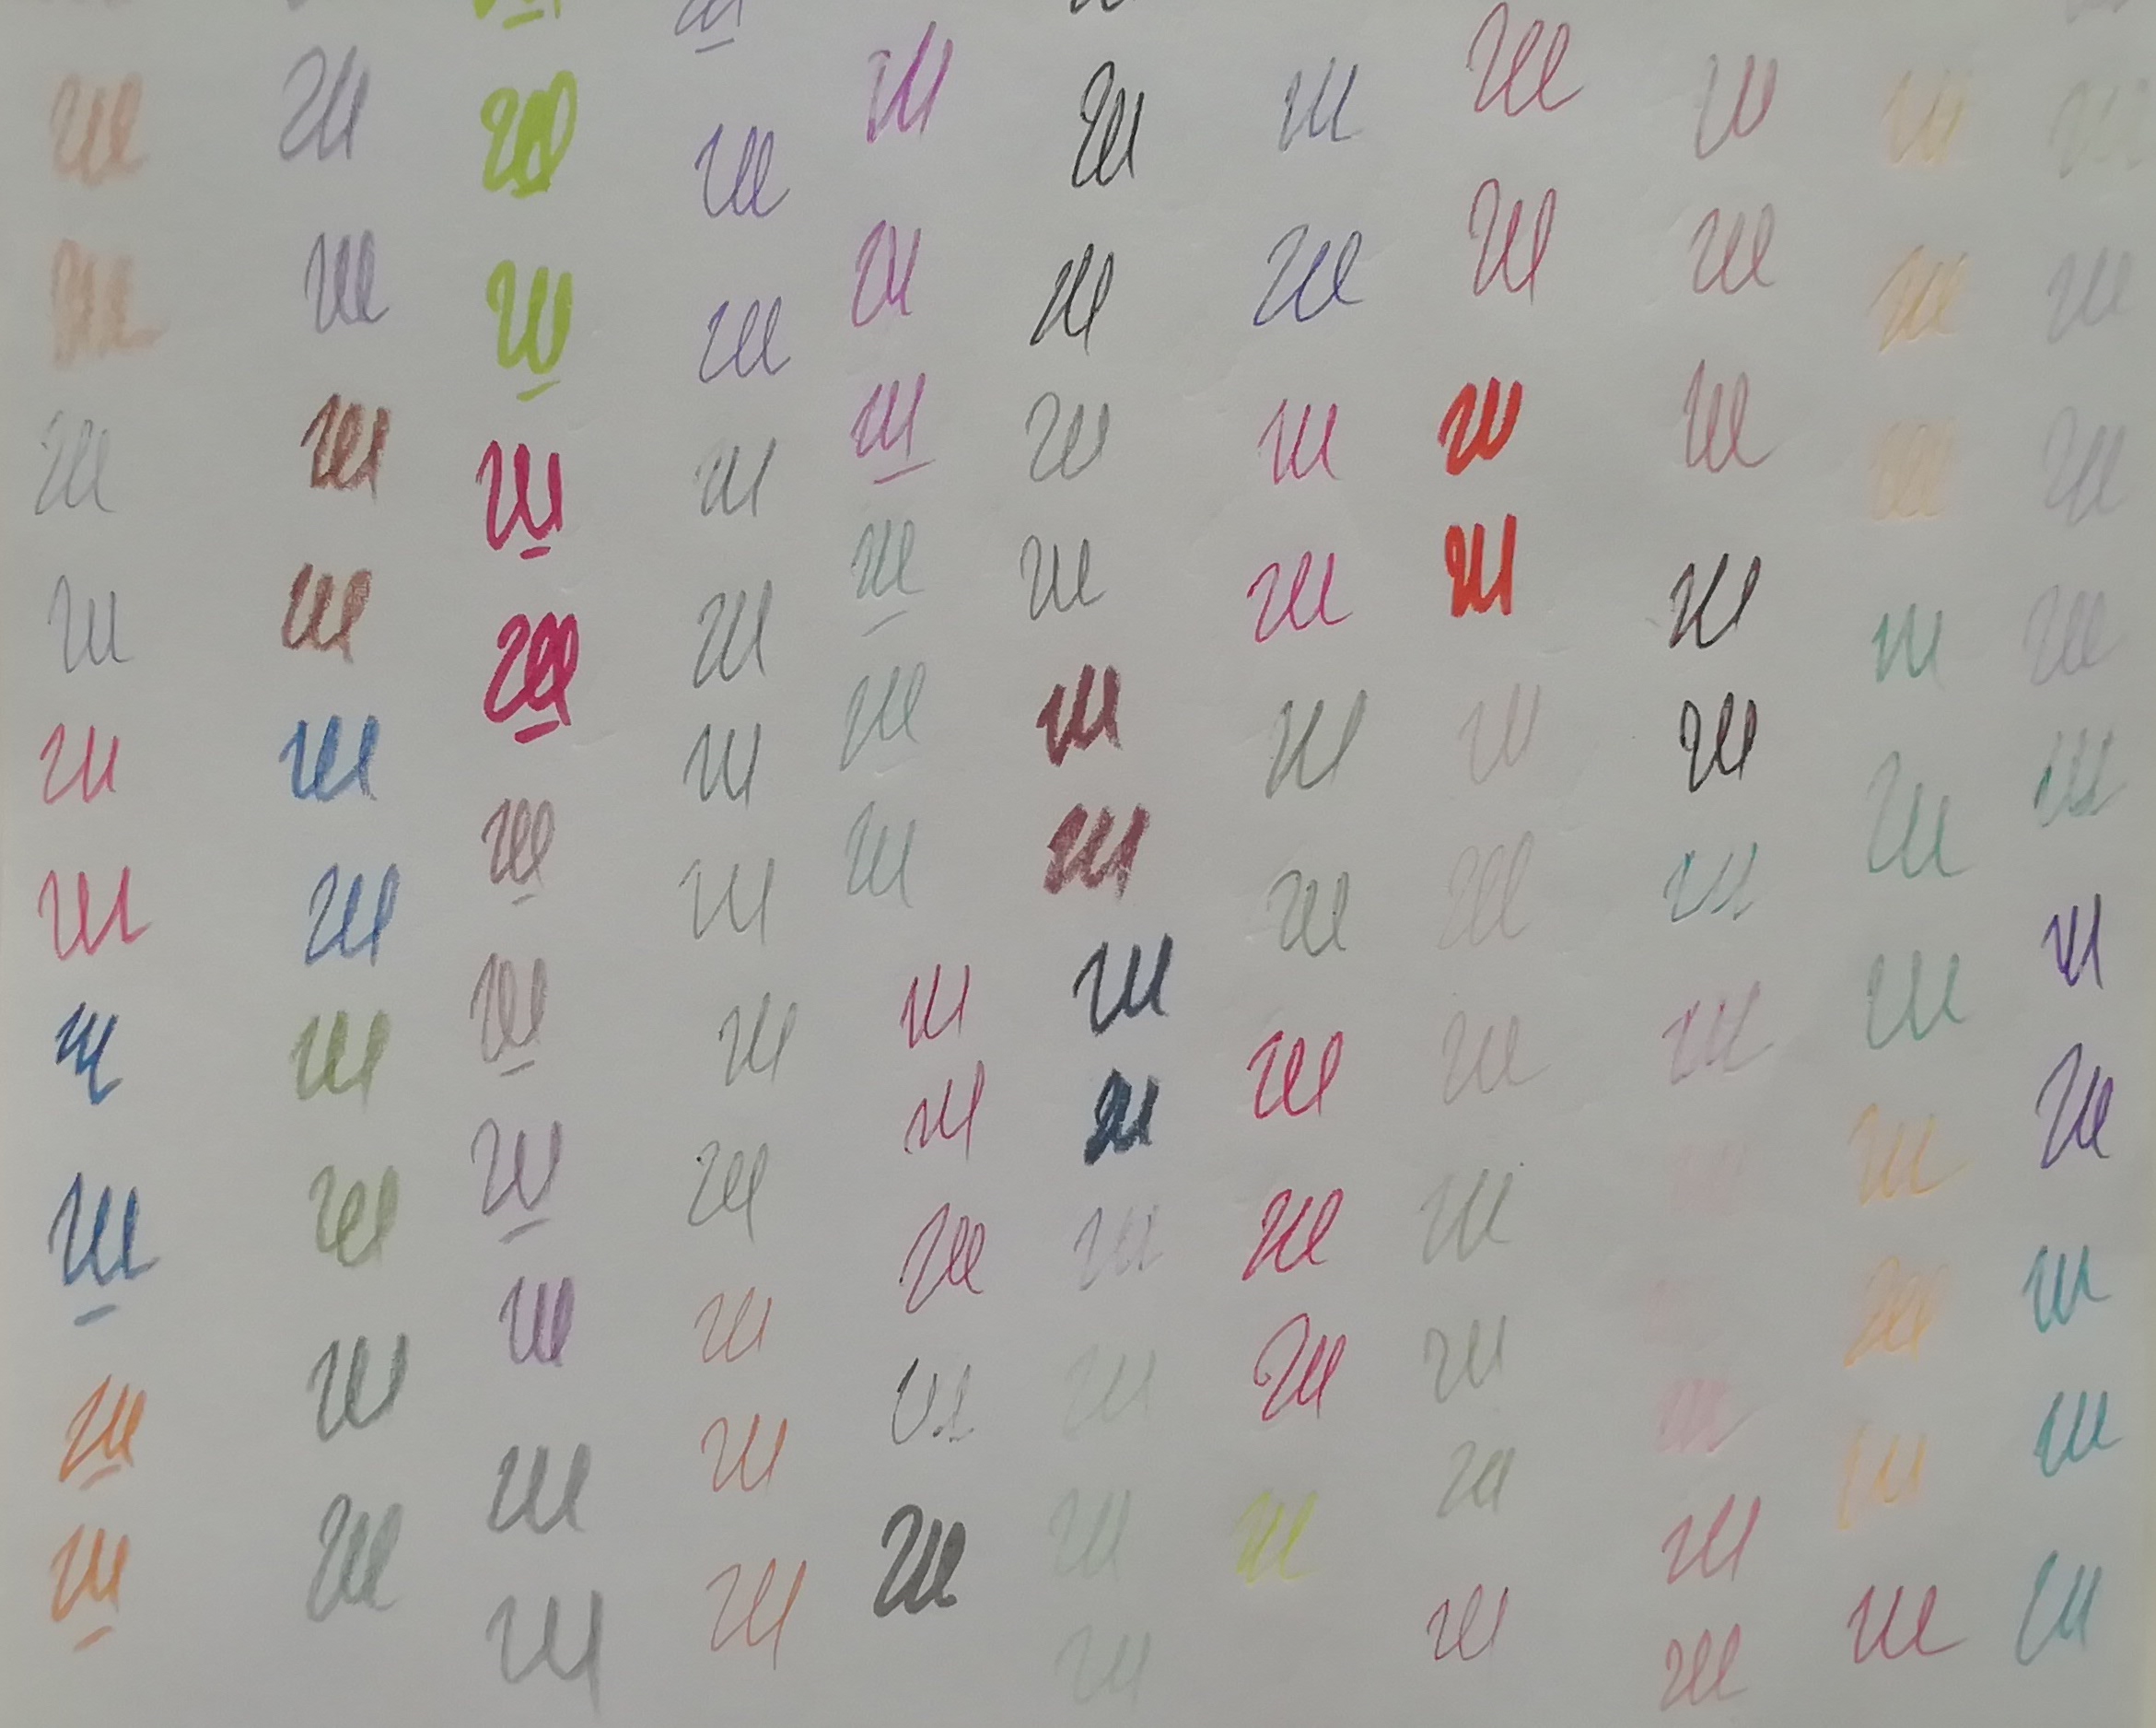 ш ш ш ш ш ш ш ш ш ш ш
ш ш ш ш ш ш ш ш ш ш ш
ш ш ш ш ш ш ш ш ш ш ш
ш ш ш ш ш ш ш ш ш ш ш
ш ш ш ш ш ш ш ш ш ш ш
ш ш ш ш ш ш ш ш ш ш ш
ш ш ш ш ш ш ш ш ш ш ш
ш ш ш ш ш ш ш ш ш ш ш
ш ш ш ш ш ш ш ш ш ш ш
ш ш ш ш ш ш ш ш ш ш ш
ш ш ш ш
ш